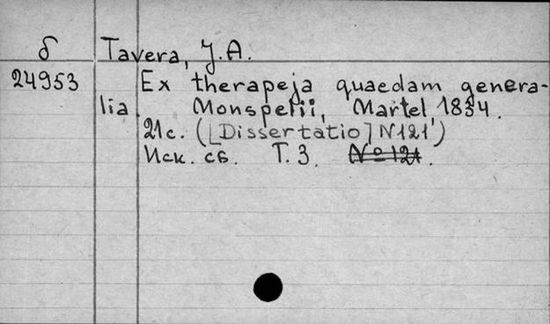 б Tavera, J.A.
24953 Ex therapeja quaedam genera-
lia. Monspelii, Martel, 1834.
21c. ([Dissertatio] N121)
Иск. сб. Т. 3. №121.